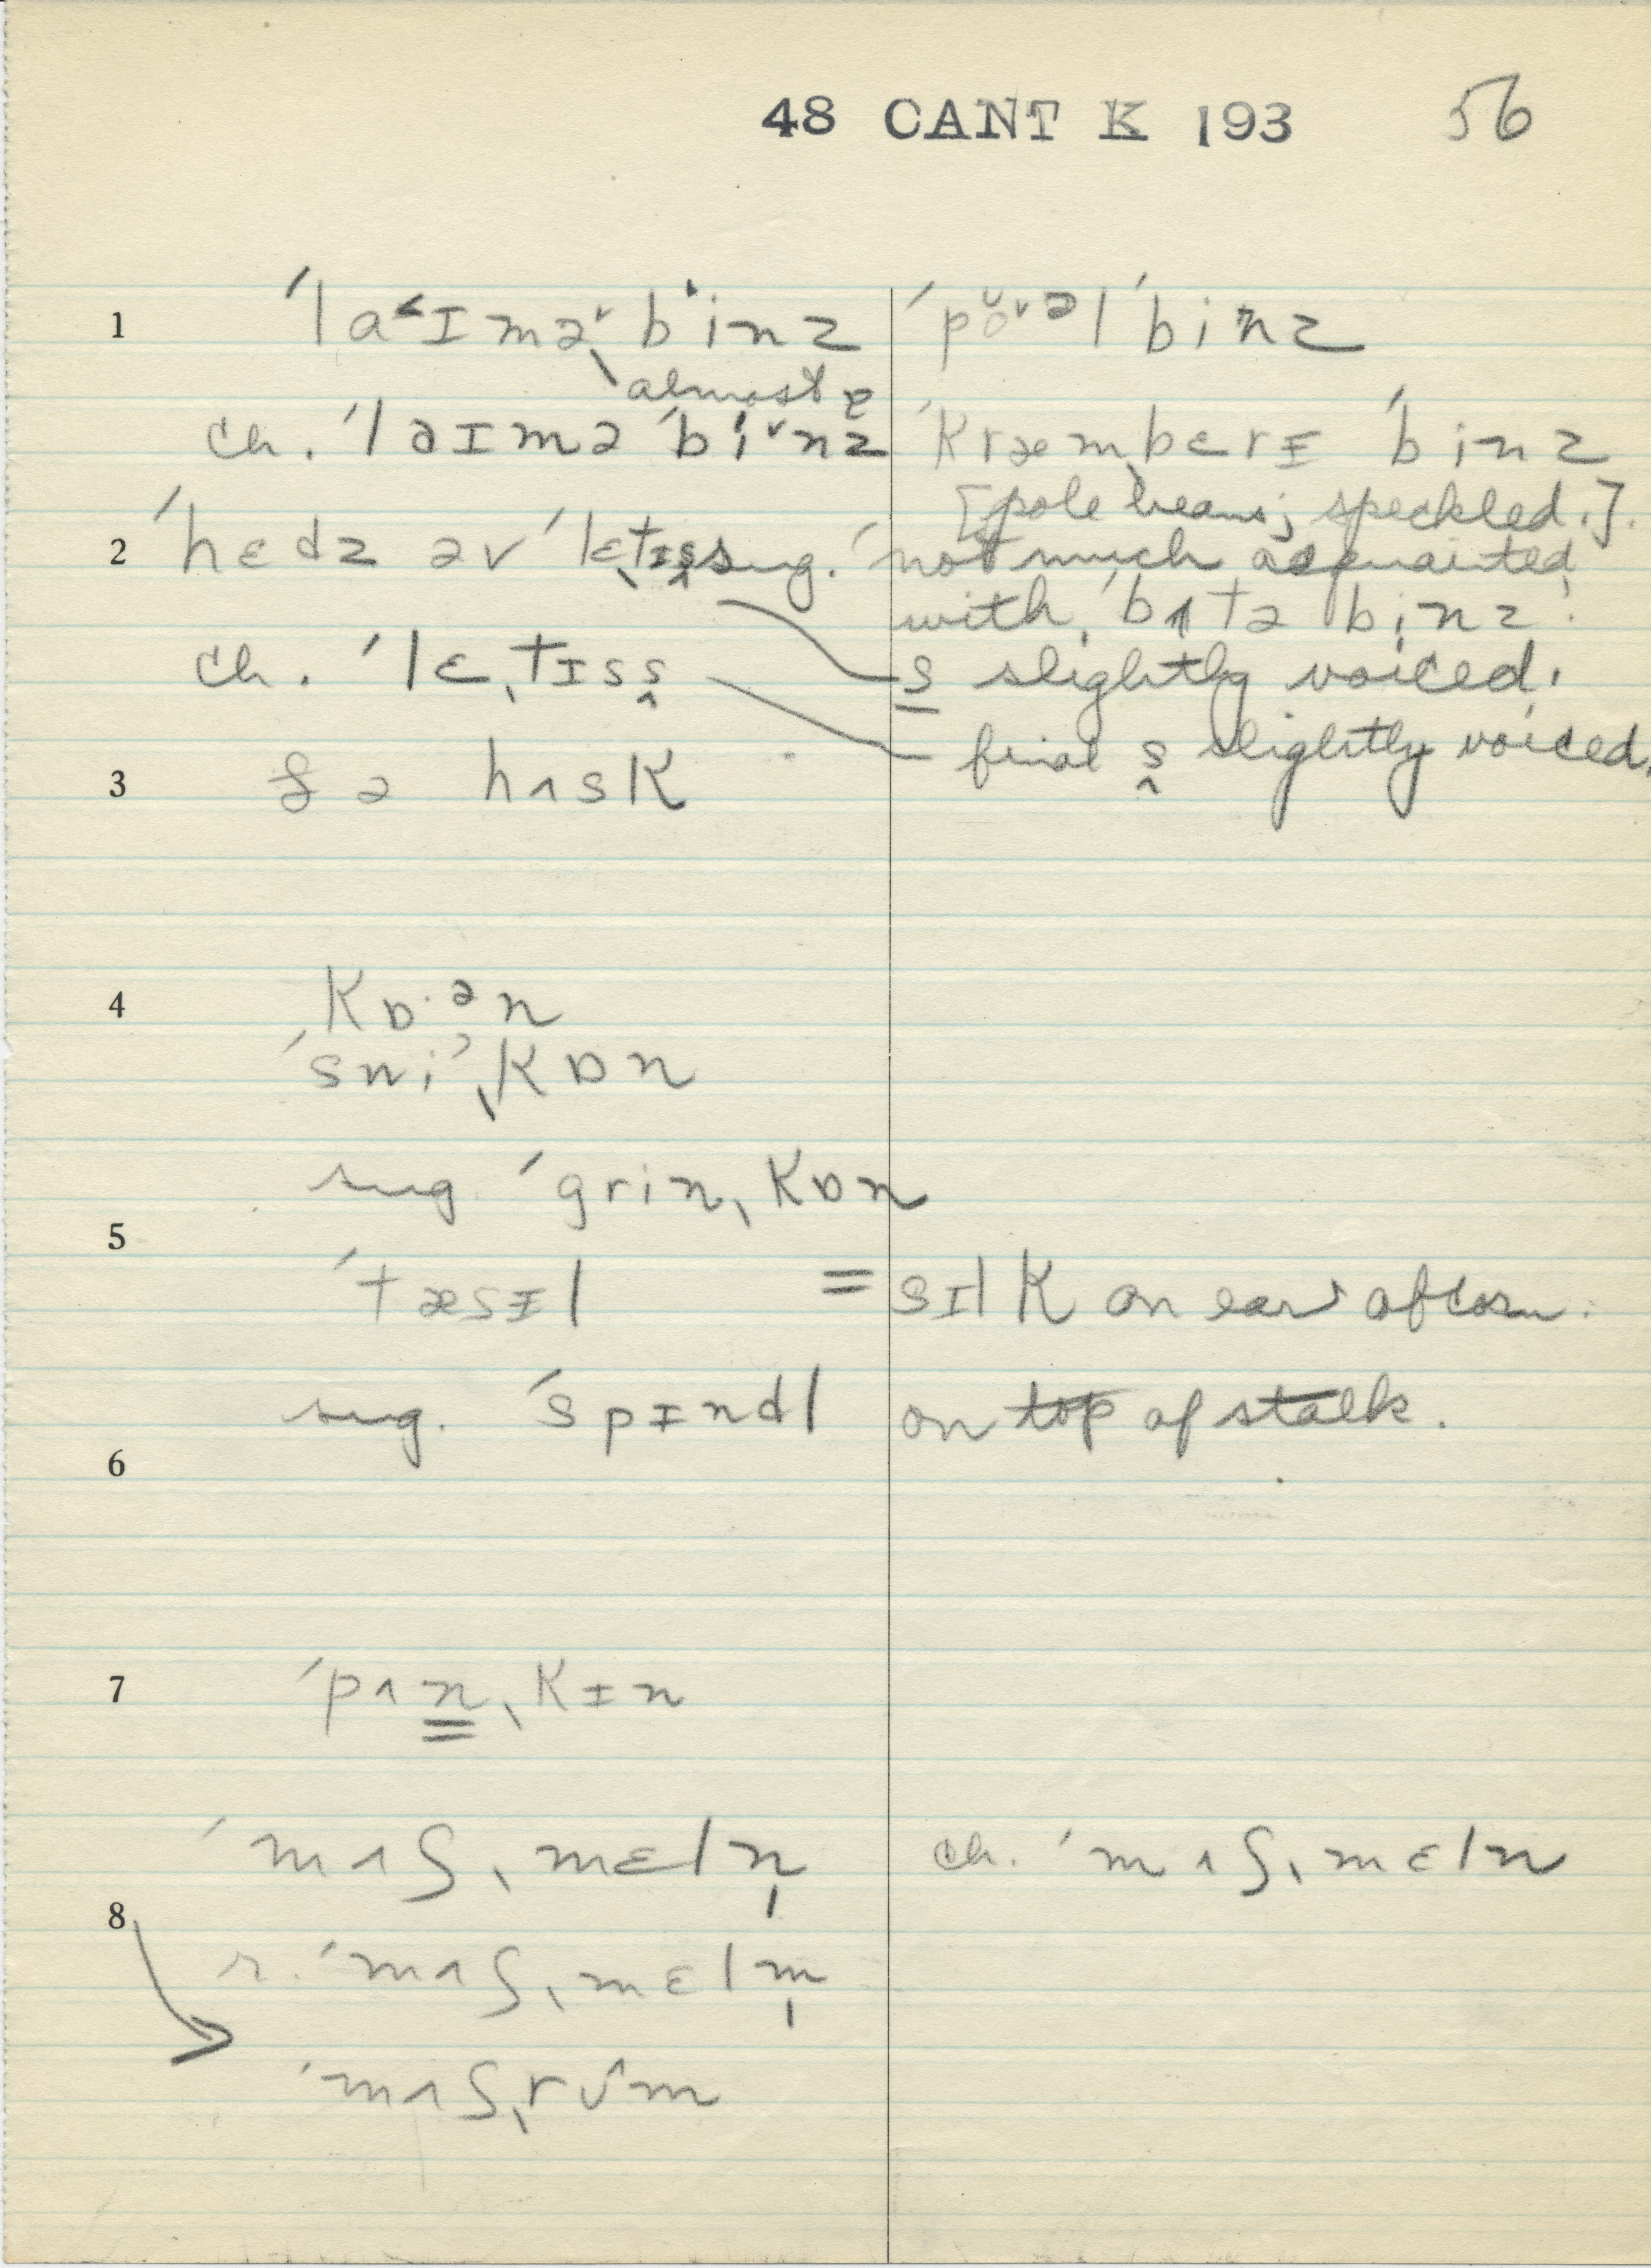 48 CANT K 193 56
1 ˈlaˑɪməˇ bˈinz ˈpoˇəl ˈbinz
almost ɐ
ch. ˈlaɪmə ˈbiˇnz ˈkræmˌbɛrɪ ˈbinz
[pole beans; speckled.].
2 ˈhɛdz əv ˈlɛˌtɪs̬ sug. ˈnot much acquainted
with ˈbʌtə ˌbinz'.
ch. ˈlɛˌtɪss̬ s slightly voiced.
final s̬ slightly voiced.
3 ðə hʌsk
4 kɒ·ᵊn
ˈsniˀˌkɒn
sug ˈgrinˌkɒn
5
ˈtæsɪl = sɪlk on ear of corn.
sug. ˈspɪndl on top of stalk.
6
7 ˈpʌnˌkɪn
ˈmʌʃˌmɛln̩ ch. ˈmʌʃˌmɛln
8
r. ˈmʌʃˌmɛlm̩
ˈmʌʃˌrʊ^m